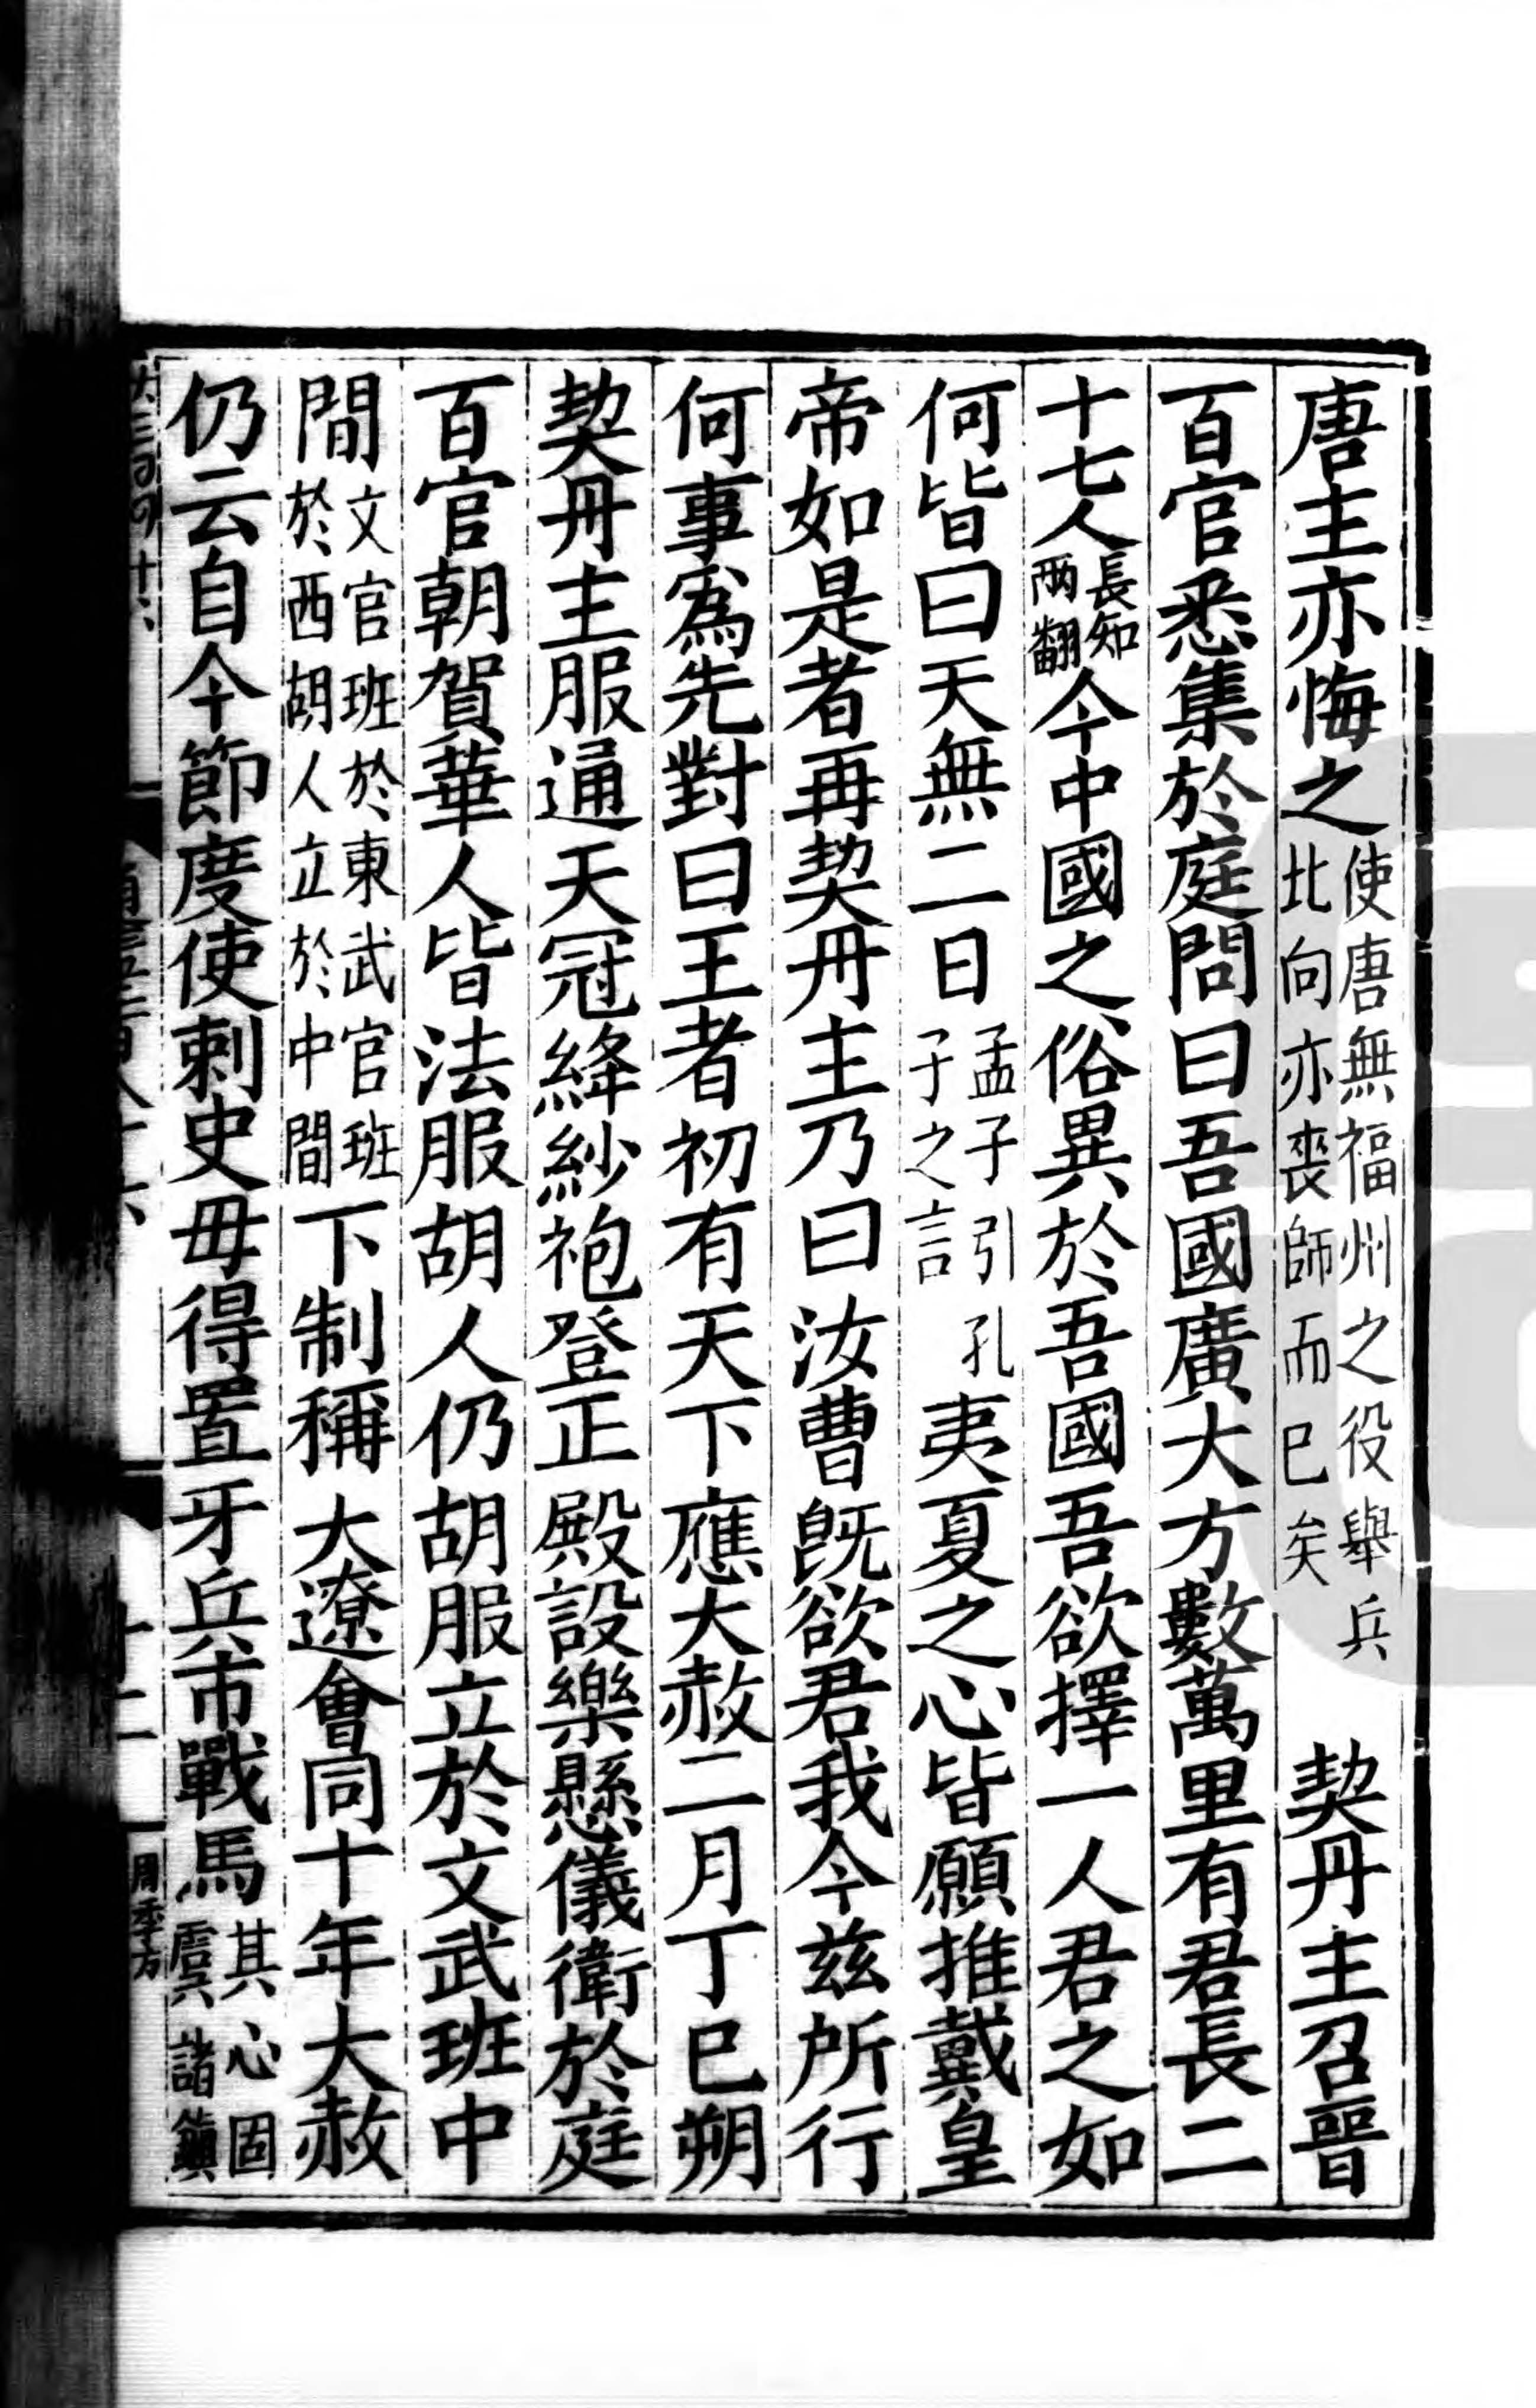 唐主亦悔之使唐無福州之役舉兵北向亦喪師而已矣 契丹主召晉
百官悉集於庭問曰吾國廣大方數萬里有君長二
十七人長知兩翻今中國之俗異於吾國吾欲擇一人君之如
何皆曰天無二日孟子引孔子之言夷夏之心皆願推戴皇
帝如是者再契丹主乃曰汝曹旣欲君我今茲所行
何事爲先對曰王者初有天下應大赦二月丁巳朔
契丹主服通天冠絳紗袍登正殿設樂懸儀衛於庭
百官朝賀華人皆法服胡人仍胡服立於文武班中
間文官班於東武官班於西胡人立於中間下制稱大遼會同十年大赦
仍云自今節度使刺史毋得置牙兵市戰馬其心固虞諸鎮